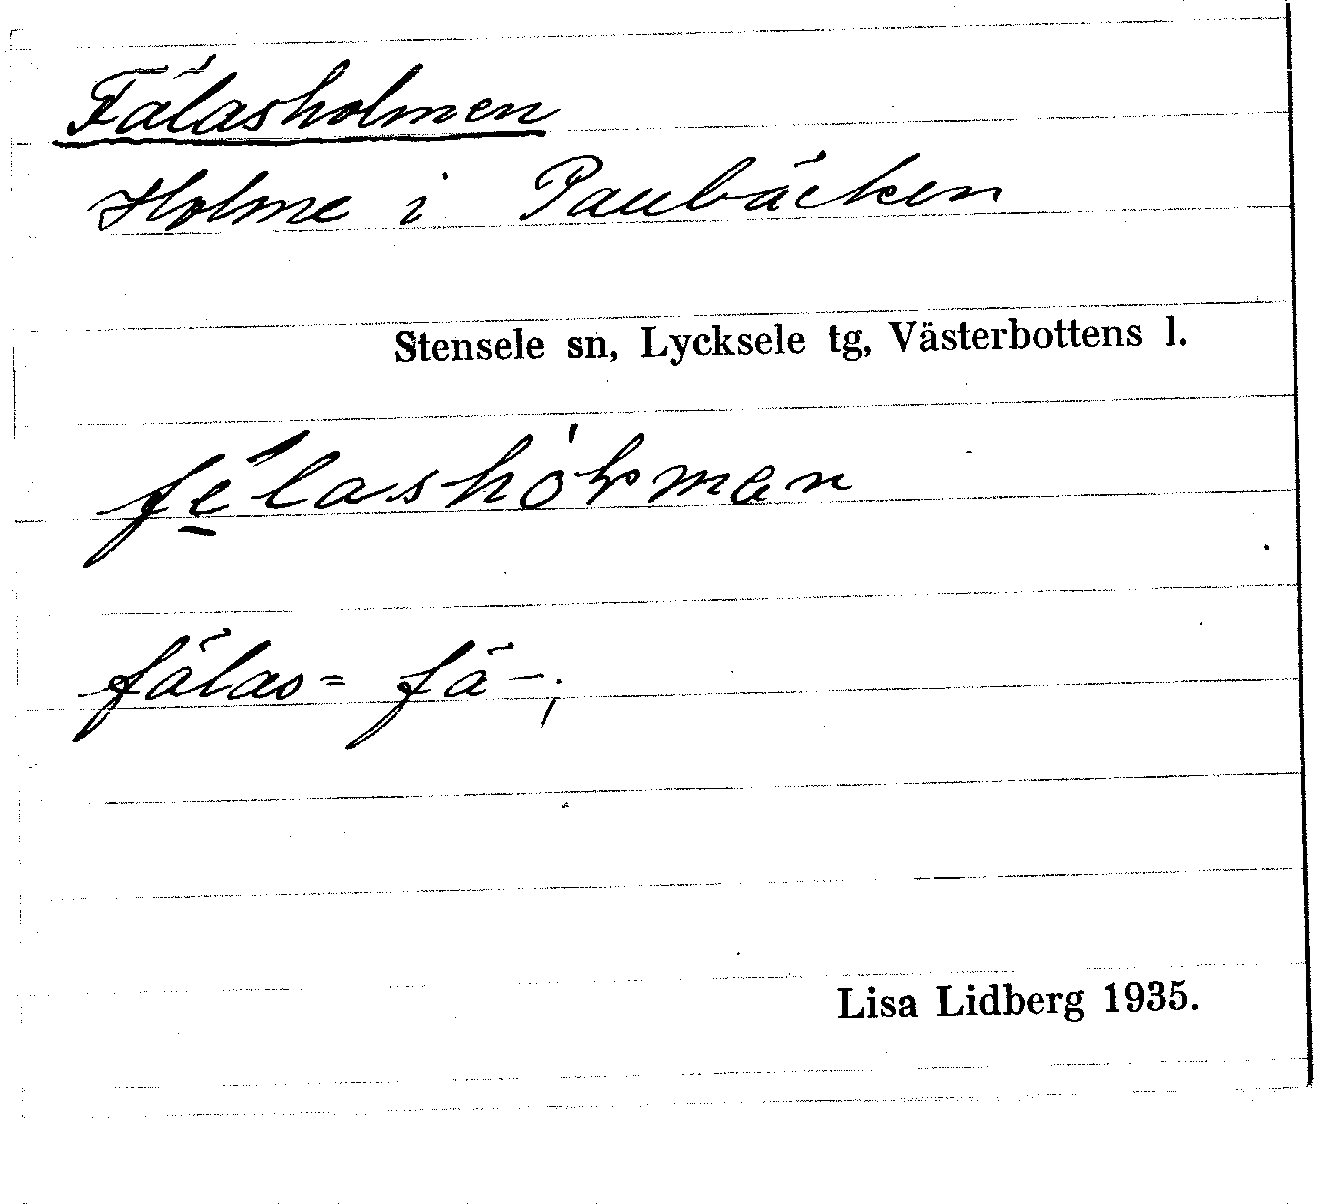 Fälasholmen
Holme i Paubäcken
Stensele sn, Lycksele tg, Västerbottens l.
fälas= fä-;
Lisa Lidberg 1935.